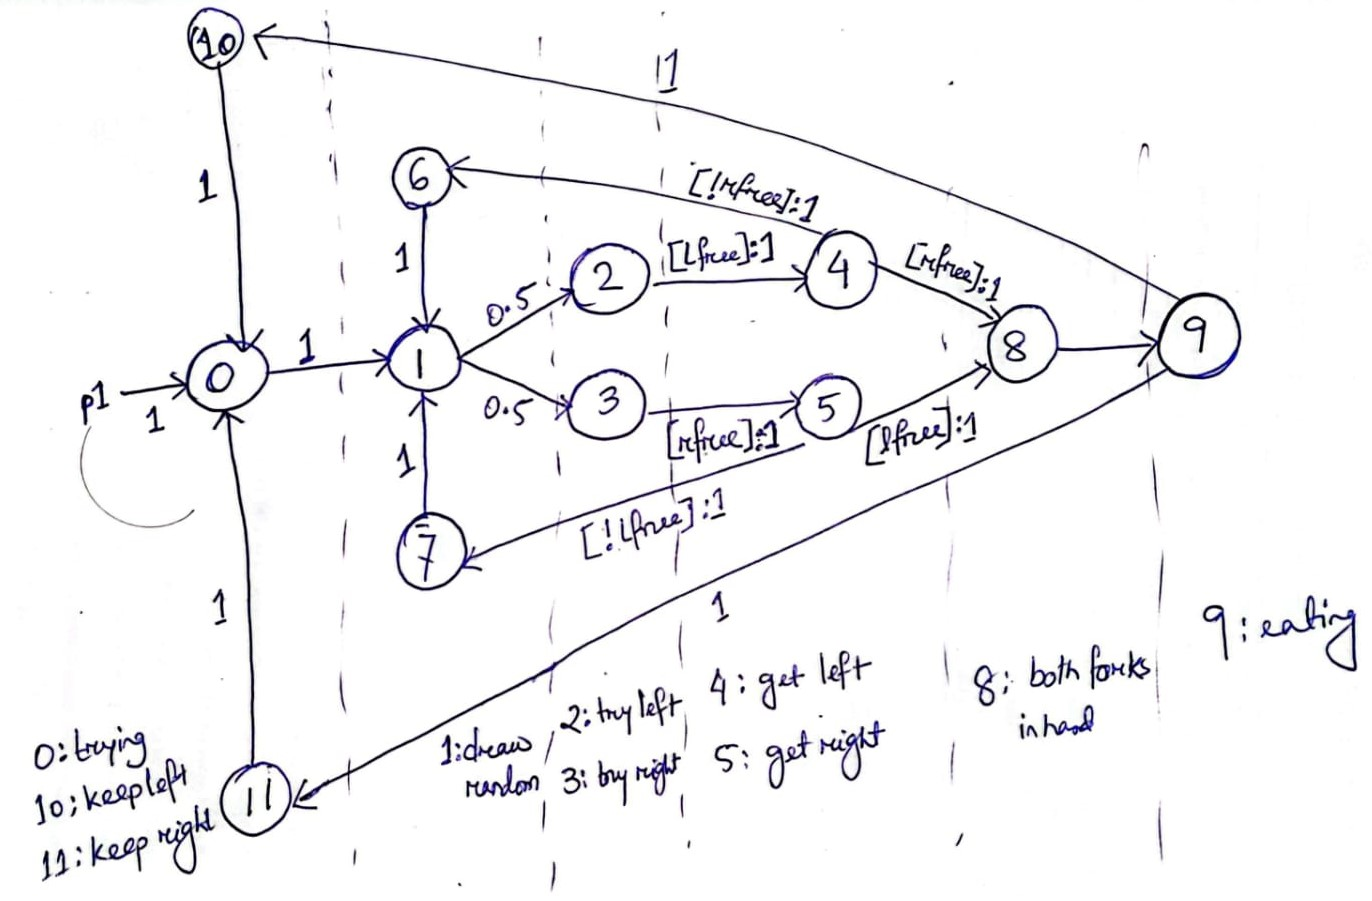 10
1
1
6
[!rfree]:1
1
0.5
2
[lfree]:1
4
[rfree]:1
p1
1
0
1
1
0.5
3
[rfree]:1
5
[lfree]:1
8
9
1
7
[!lfree]:1
1
1
11
0: trying
10: keep left
11: keep right
1: draw
random
2: try left
3: try right
4: get left
5: get right
8: both forks
in hand
9: eating